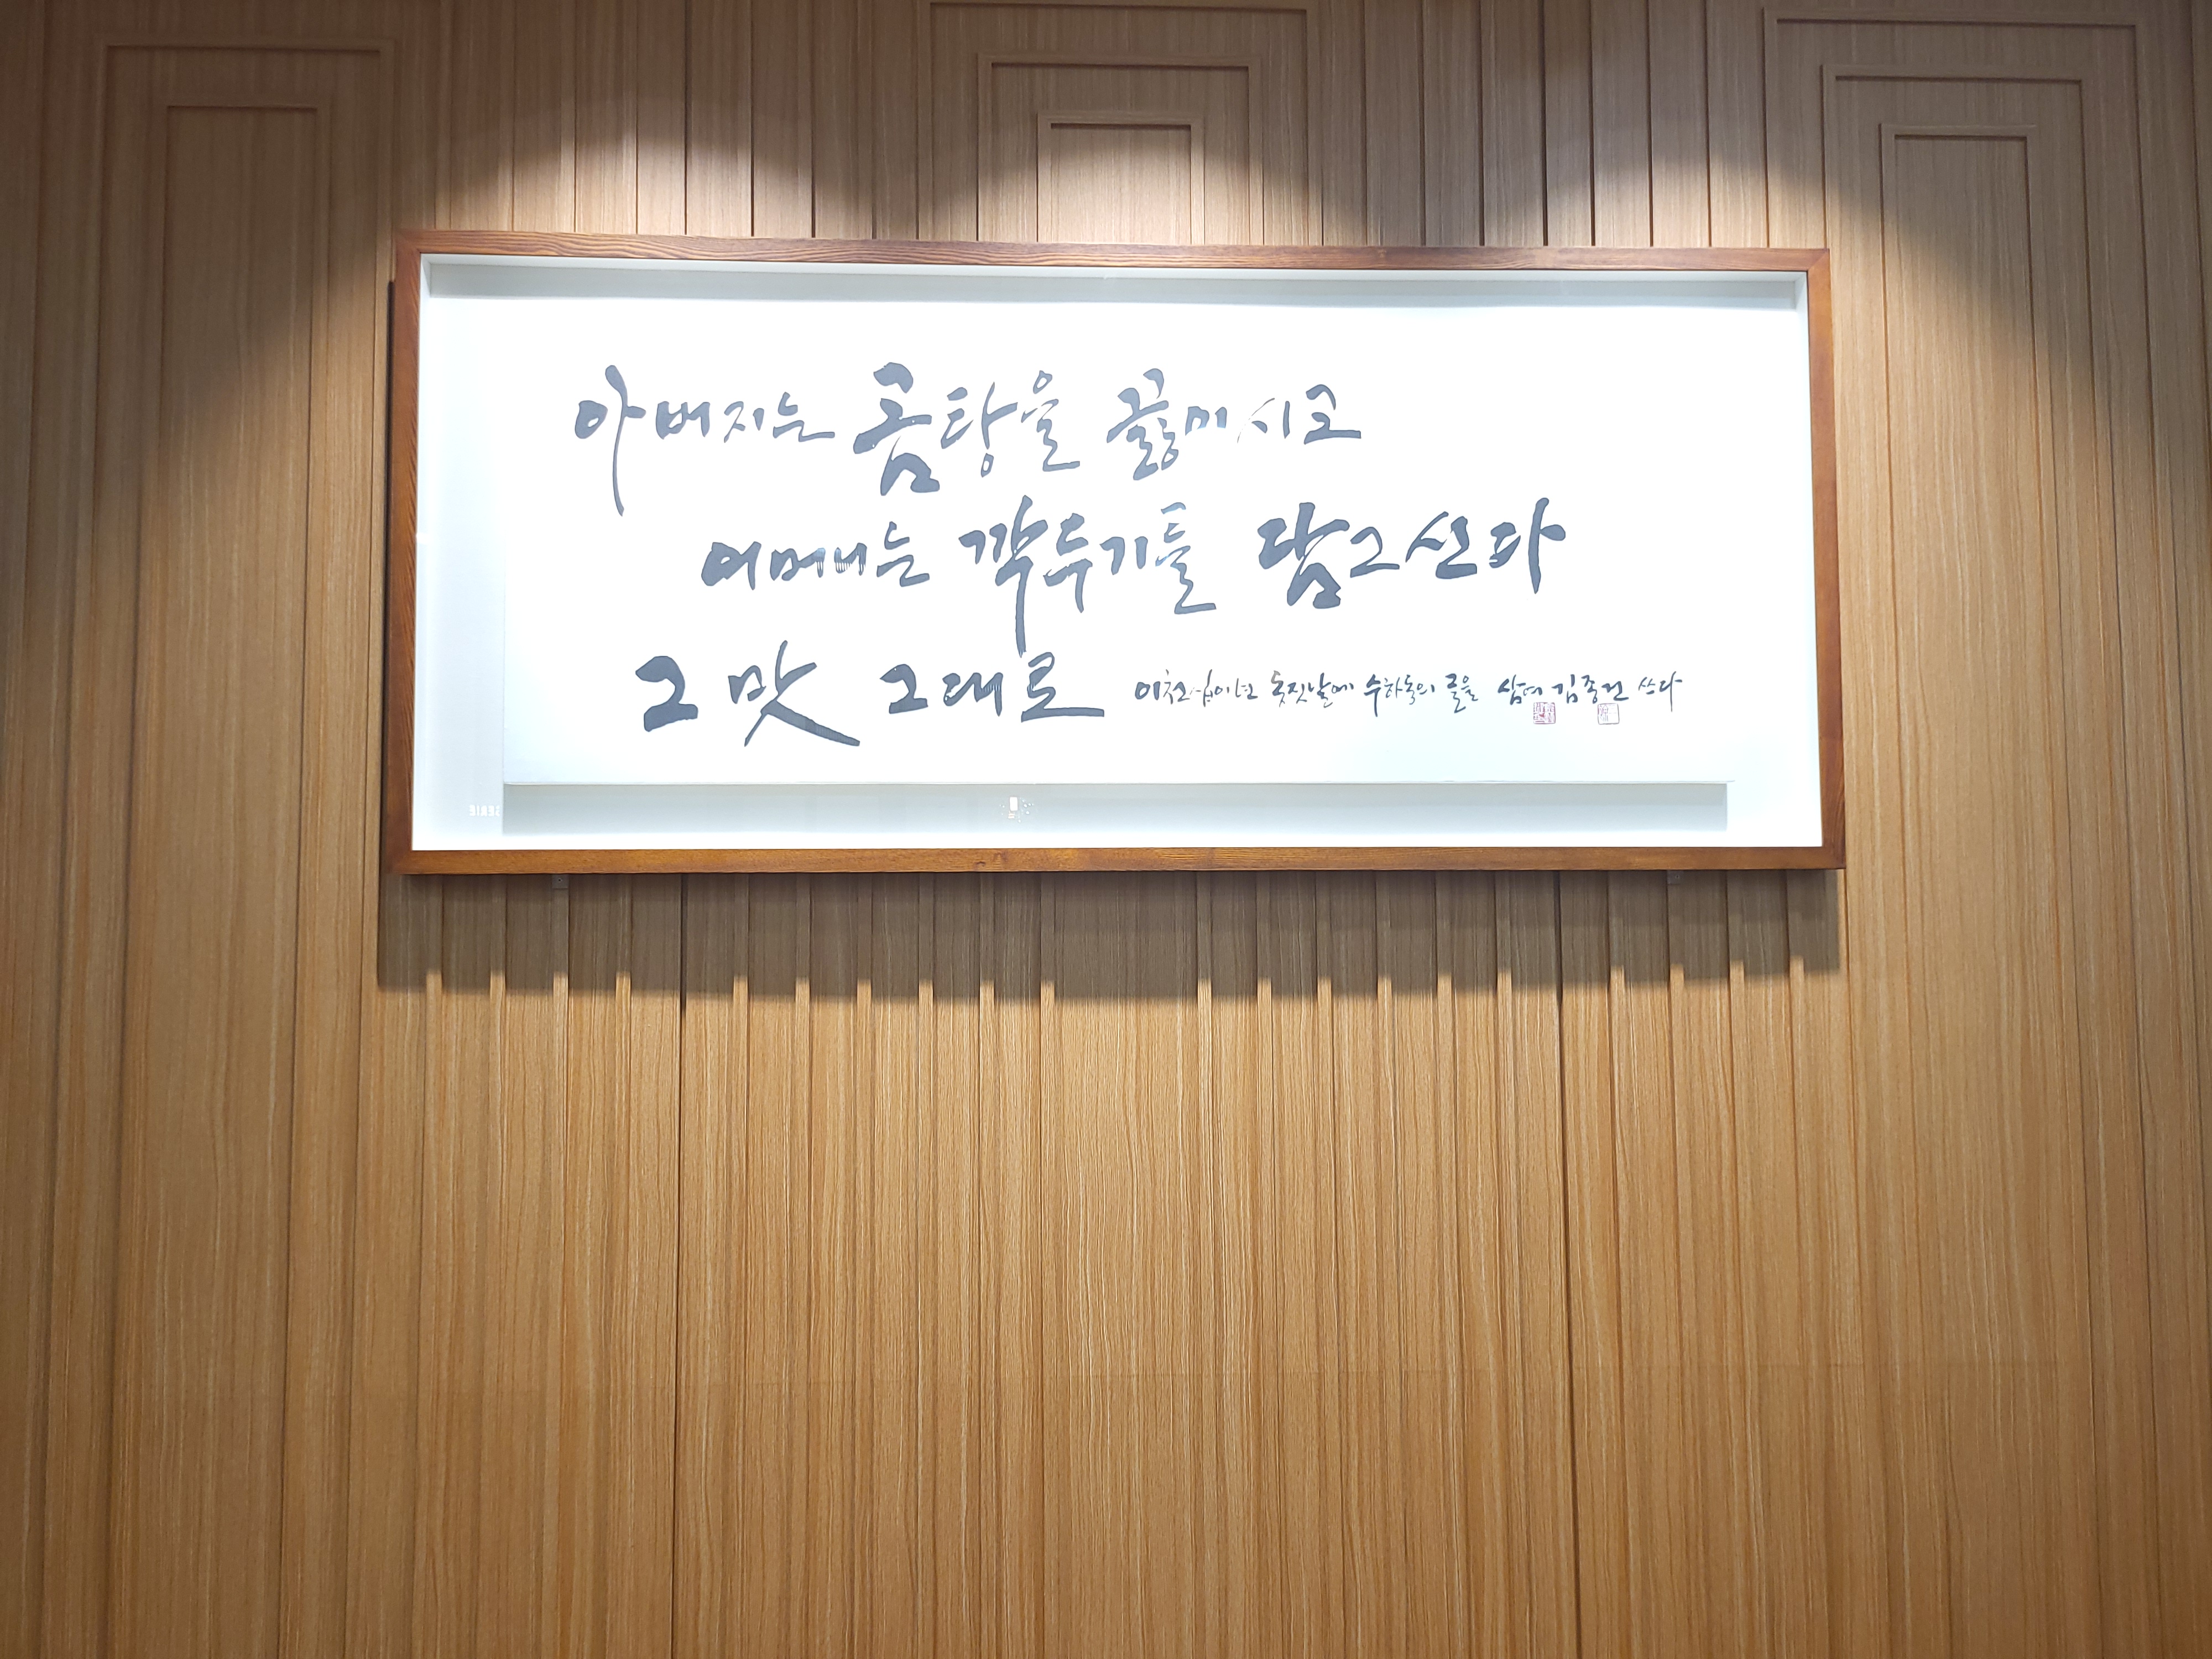 아버지는 곰탕을 끓이시고
어머니는 깍두기를 담그신다
그 맛 그대로
이천십이년 첫날에 수하동의 글을 삼여 김종건 쓰다